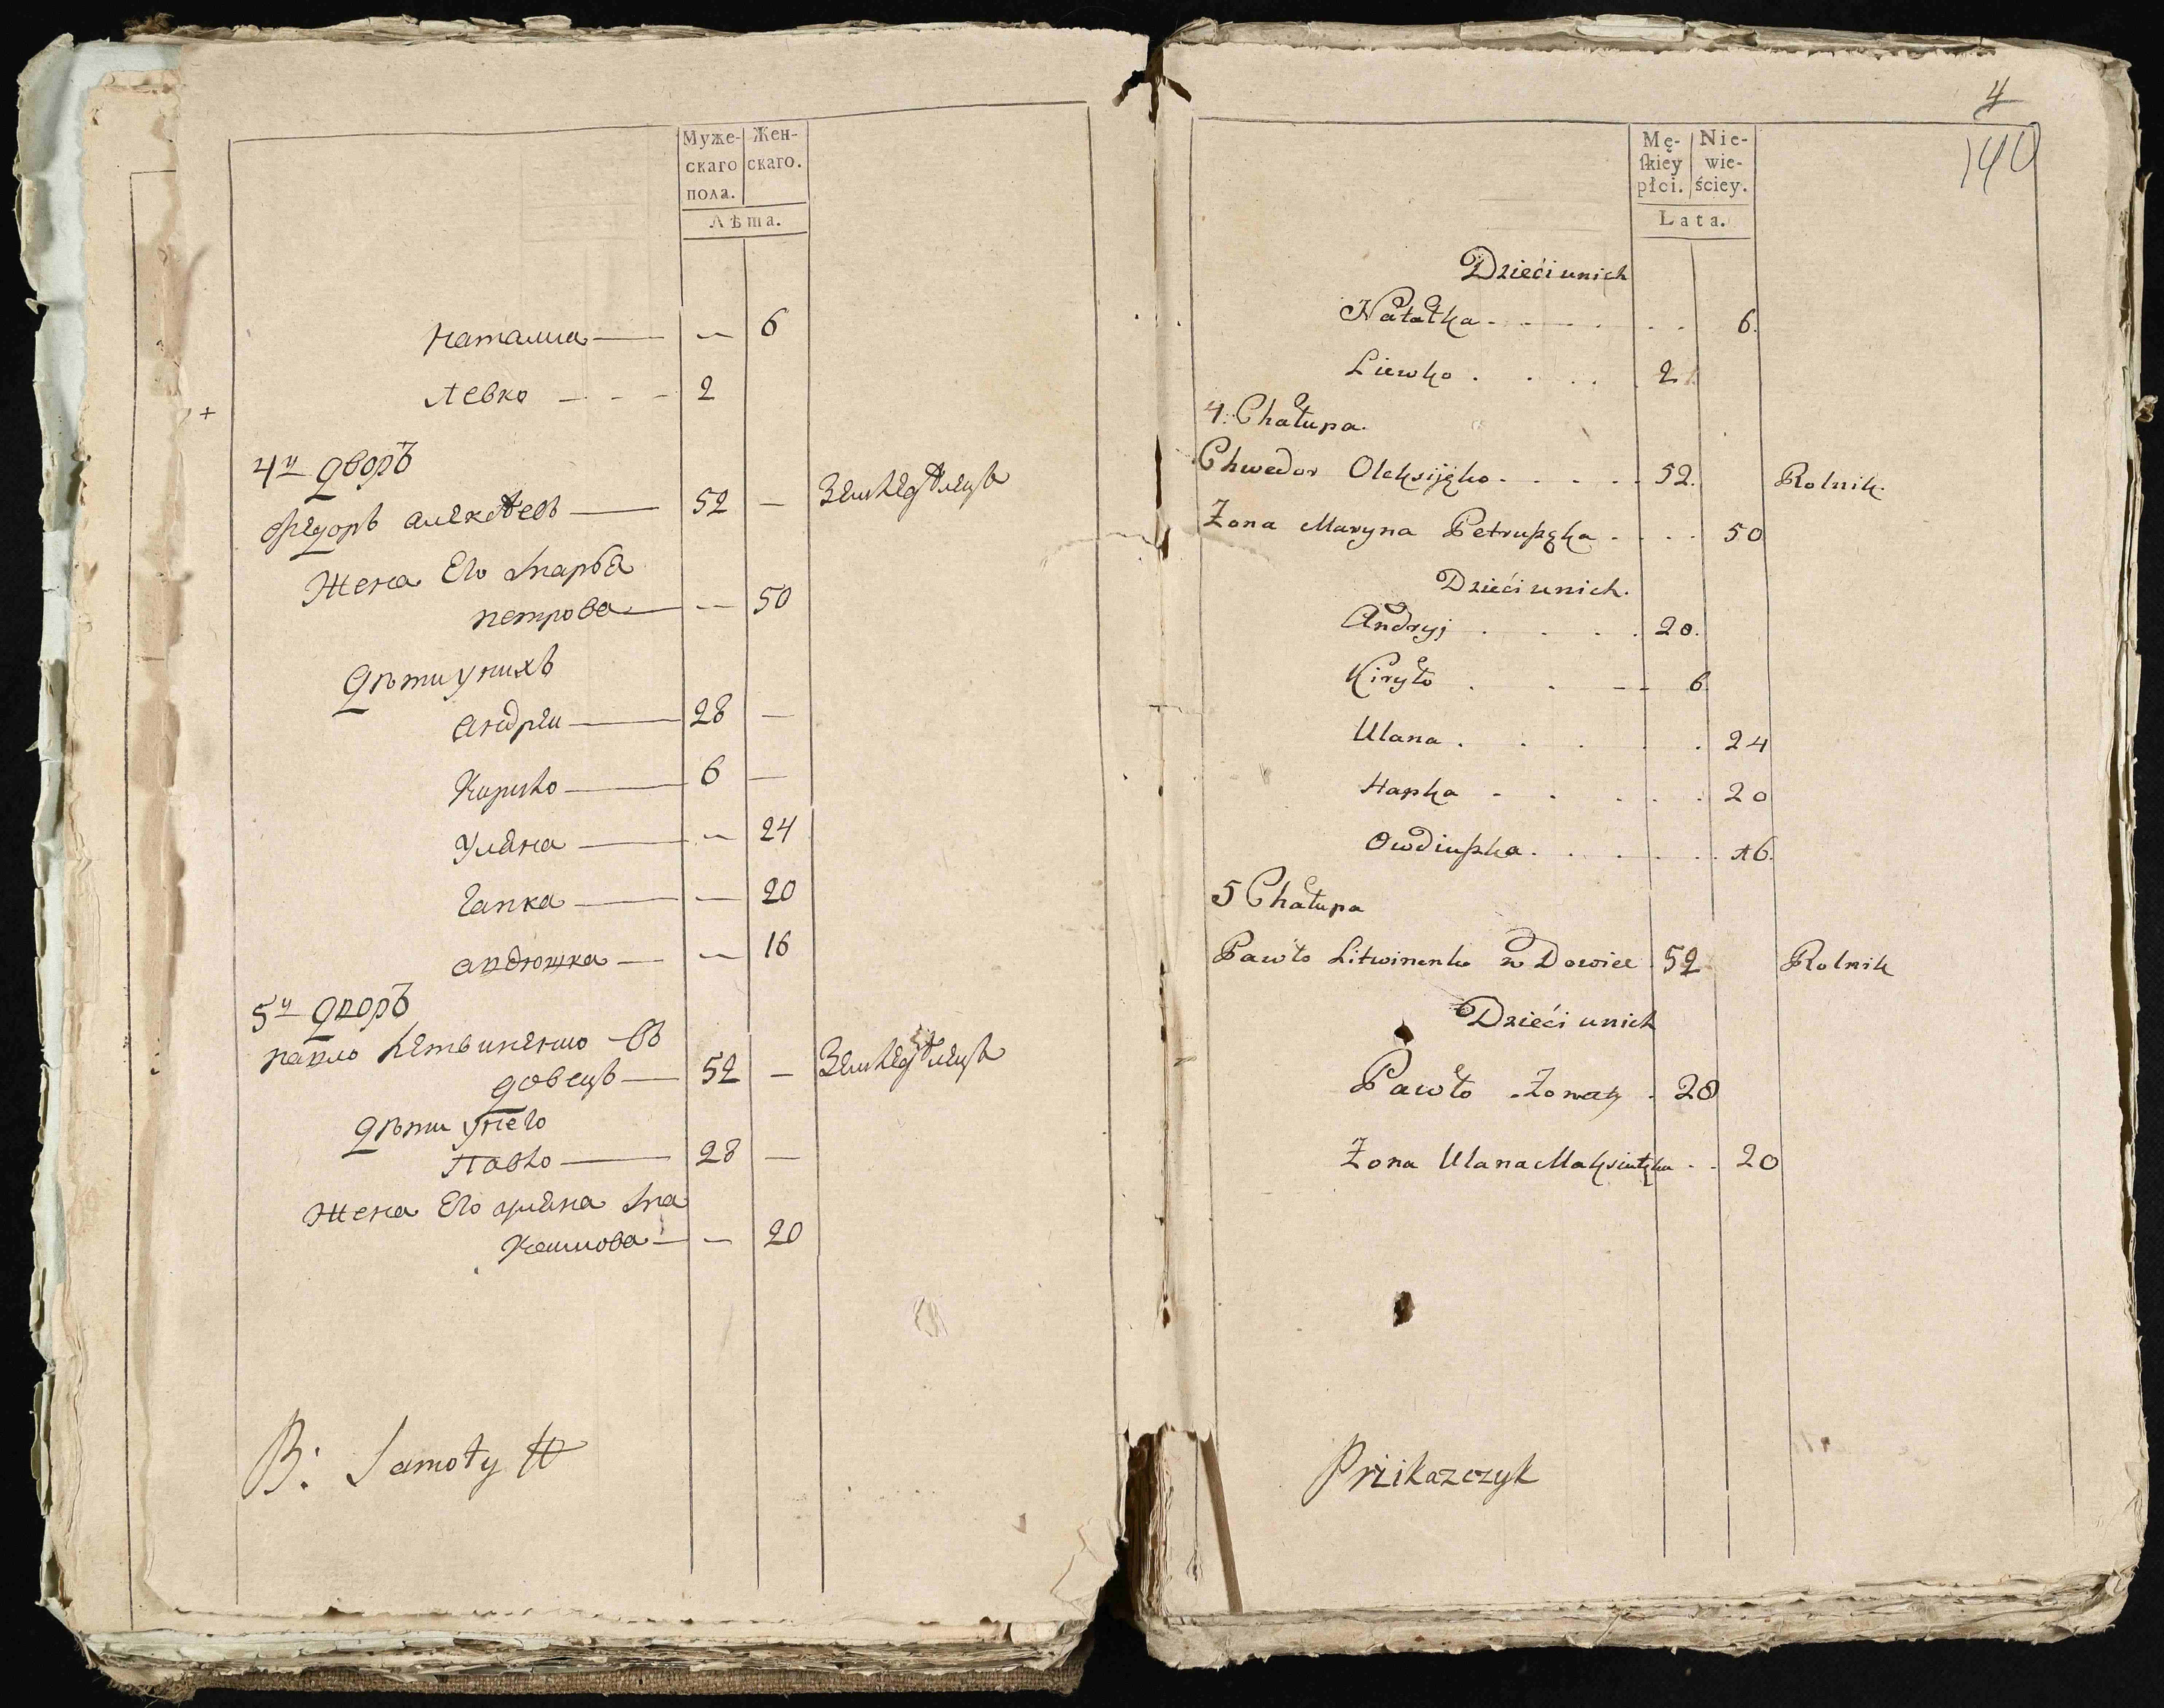 Муже-
скаго
пола.
Жен-
скаго.
Лѣта.
Наталия — — 6
Левко - - - 2
4й дворъ
Фредоръ Алексѣевъ — 52 — Земледѣлецъ
Жена Его Марья
петрова — — 50
дѣти у нихъ
Андрѣи — 28 —
Кирило — 6 —
Уляна — — 24
Гапка — — 20
Авдюшка — — 16
5й дворъ
павло Летвиненко въ
довецъ — 52 — Земледѣлецъ
дѣти унего
Павло — 28 —
Жена Его уляна Ма
ксимова — — 20
B: Samoty
4
140
Mę-
ſkiey
płci.
Nie-
wie-
ściey.
Lata.
Dzieći unich
Natałka - - - - 6.
Liewko . . . . 2
4. Chałupa.
Chwedor Oleksijęko . . . . . 52. Rolnik.
Zona Maryna Petrußęka . . . . 50
Dzieći unich.
Andryj . . . . 28.
Kiryło . . -- 6
Ulana . . . . . 24
Hapka - . . . . 20
Owdiußka . . . . . 16.
5 Chałupa
Pawło Litwinenko w Dowiec 52 Rolnik
Dzieći unich
Pawło . Zonaty . 28
Zona Ulana . . 20
Prźikazczyk